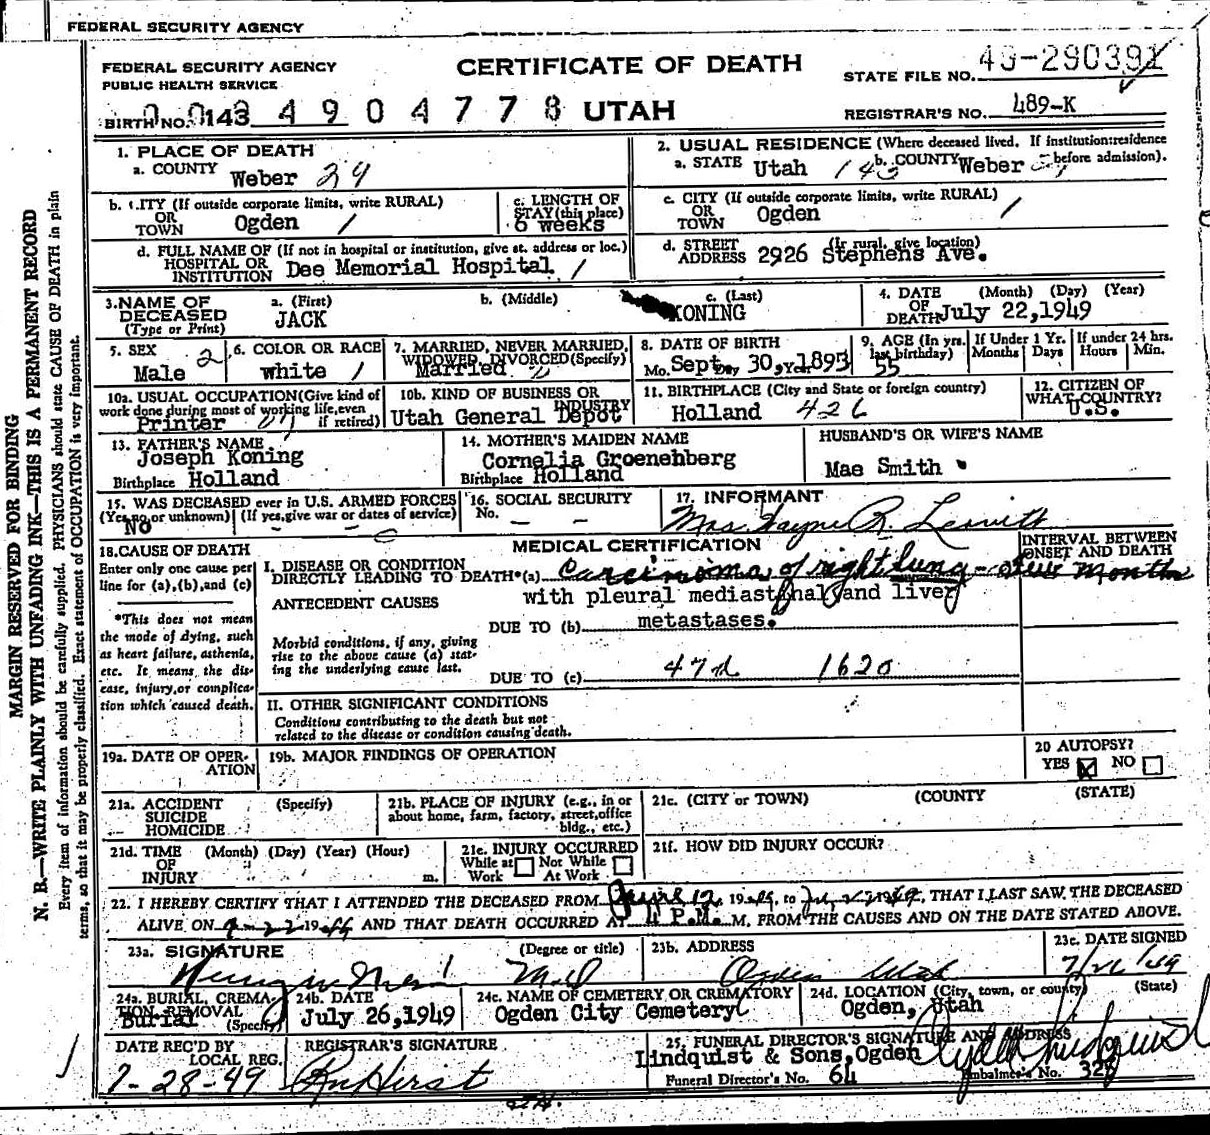 FEDERAL SECURITY AGENCY
FEDERAL SECURITY AGENCY
PUBLIC HEALTH SERVICE
CERTIFICATE OF DEATH
STATE FILE NO. 49-290391
BIRTH NO. 0143 4904778 UTAH
REGISTRAR'S NO. 489-K
1. PLACE OF DEATH
a. COUNTY Weber 29
2. USUAL RESIDENCE (Where deceased lived. If institution:residence before admission).
a. STATE Utah 143 b. COUNTY Weber
b. CITY (If outside corporate limits, write RURAL) OR TOWN Ogden /
c. LENGTH OF STAY (this place) 6 weeks
c. CITY (If outside corporate limits, write RURAL) OR TOWN Ogden /
d. FULL NAME OF (If not in hospital or institution, give st. address or loc.) HOSPITAL OR INSTITUTION Dee Memorial Hospital /
d. STREET ADDRESS (If rural, give location) 2926 Stephens Ave.
3. NAME OF DECEASED (Type or Print)
a. (First) JACK
b. (Middle)
c. (Last) KONING
4. DATE OF DEATH (Month) (Day) (Year) July 22,1949
5. SEX Male 2
6. COLOR OR RACE white /
7. MARRIED, NEVER MARRIED, WIDOWED, DIVORCED (Specify) Married
8. DATE OF BIRTH Mo. Sept Day 30, Yr. 1893
9. AGE (In yrs. last birthday) 55
If Under 1 Yr. Months Days
If under 24 hrs. Hours Min.
10a. USUAL OCCUPATION (Give kind of work done during most of working life, even if retired) Printer
10b. KIND OF BUSINESS OR INDUSTRY Utah General Depot
11. BIRTHPLACE (City and State or foreign country) Holland 426
12. CITIZEN OF WHAT COUNTRY? U.S.
13. FATHER'S NAME Joseph Koning
Birthplace Holland
14. MOTHER'S MAIDEN NAME Cornelia Groenenberg
Birthplace Holland
HUSBAND'S OR WIFE'S NAME
Mae Smith
15. WAS DECEASED ever in U.S. ARMED FORCES (Yes, no or unknown) (If yes, give war or dates of service) No - -
16. SOCIAL SECURITY No. - -
17. INFORMANT
Mrs. Wayne R. Leavitt
18. CAUSE OF DEATH
Enter only one cause per line for (a), (b), and (c)
*This does not mean the mode of dying, such as heart failure, asthenia, etc. It means the disease, injury, or complication which caused death.
MEDICAL CERTIFICATION
INTERVAL BETWEEN ONSET AND DEATH
I. DISEASE OR CONDITION DIRECTLY LEADING TO DEATH* (a) Carcinoma of right lung - few months
with pleural mediastinal and liver
ANTECEDENT CAUSES
DUE TO (b) metastases.
Morbid conditions, if any, giving rise to the above cause (a) stating the underlying cause last.
DUE TO (c) 47d 1620
II. OTHER SIGNIFICANT CONDITIONS
Conditions contributing to the death but not related to the disease or condition causing death.
19a. DATE OF OPERATION
19b. MAJOR FINDINGS OF OPERATION
20 AUTOPSY?
YES X NO
21a. ACCIDENT SUICIDE HOMICIDE (Specify)
21b. PLACE OF INJURY (e.g., in or about home, farm, factory, street, office bldg., etc.)
21c. (CITY or TOWN) (COUNTY) (STATE)
21d. TIME OF INJURY (Month) (Day) (Year) (Hour) m.
21e. INJURY OCCURRED While at Work Not While At Work
21f. HOW DID INJURY OCCUR?
22. I HEREBY CERTIFY THAT I ATTENDED THE DECEASED FROM June 12, 1949, to July 22, 1949, THAT I LAST SAW THE DECEASED
ALIVE ON 7-22 1949 AND THAT DEATH OCCURRED AT 4 P.M. M, FROM THE CAUSES AND ON THE DATE STATED ABOVE.
23a. SIGNATURE (Degree or title) M.D
23b. ADDRESS Ogden Utah
23c. DATE SIGNED 7/26/49
24a. BURIAL, CREMATION, REMOVAL (Specify) Burial
24b. DATE July 26,1949
24c. NAME OF CEMETERY OR CREMATORY Ogden City Cemetery
24d. LOCATION (City, town, or county) (State) Ogden, Utah
DATE REC'D BY LOCAL REG. 7-28-49
REGISTRAR'S SIGNATURE
25. FUNERAL DIRECTOR'S SIGNATURE AND ADDRESS
Lindquist & Sons, Ogden
Funeral Director's No. 64 Embalmer's No. 328
MARGIN RESERVED FOR BINDING
N. B.—WRITE PLAINLY WITH UNFADING INK—THIS IS A PERMANENT RECORD
Every item of information should be carefully supplied. PHYSICIANS should state CAUSE OF DEATH in plain
terms, so that it may be properly classified. Exact statement of OCCUPATION is very important.